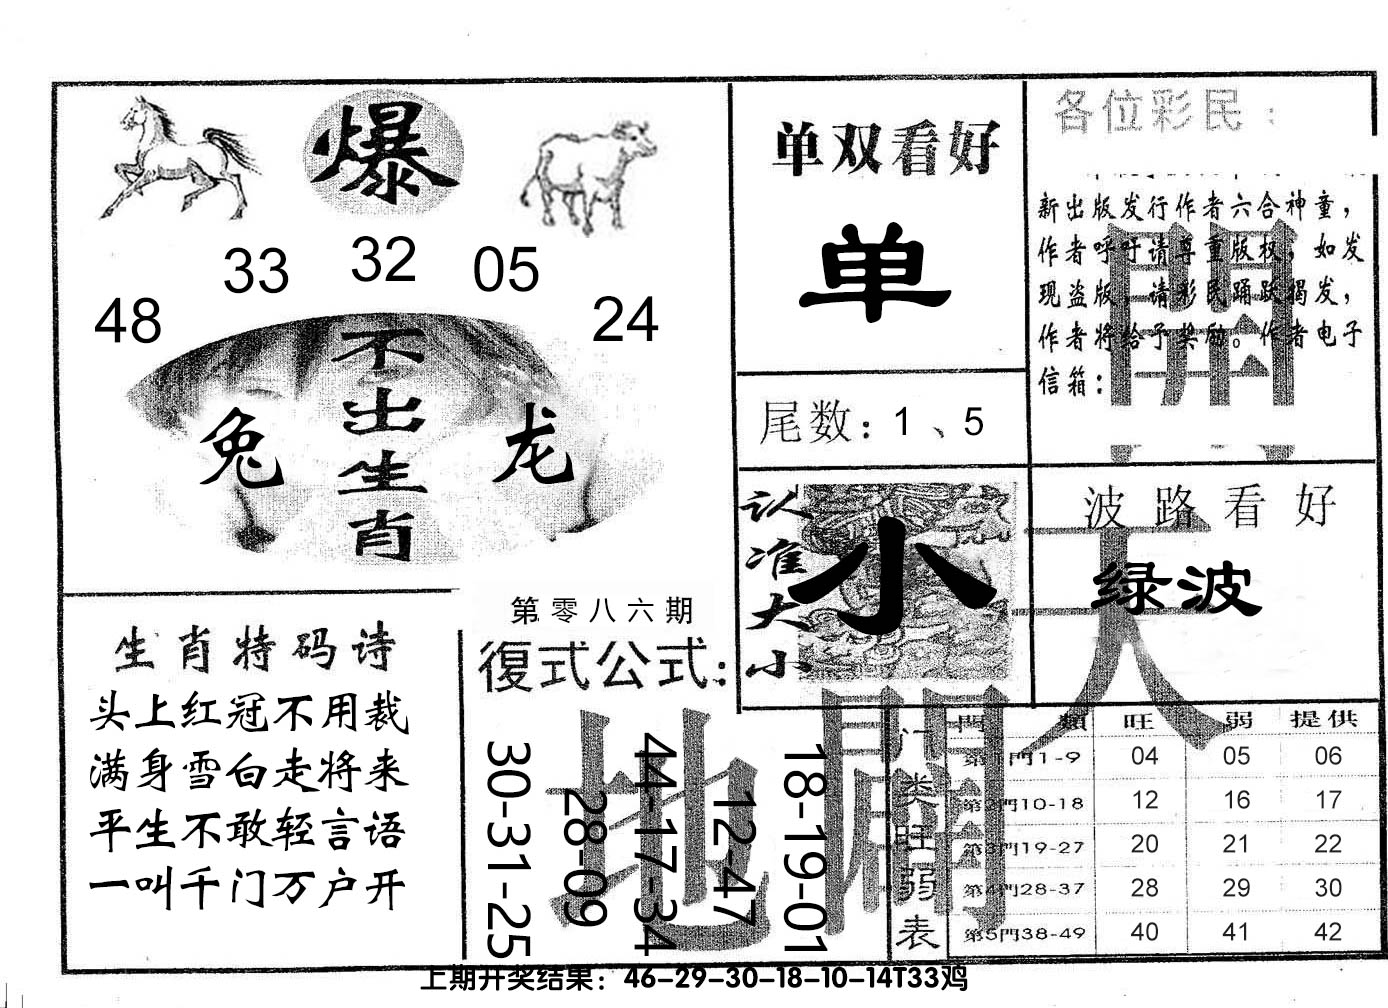 爆
33 32 05
48 24
不出生肖
兔 龙
单双看好
单
尾数：1、5
各位彩民：
新出版发行作者六合神童，
作者呼吁请尊重版权，如发
现盗版，请彩民踊跃揭发，
作者将给予奖励。作者电子
信箱：
认准大小
小
波路看好
绿波
天
開
地
闢
生肖特码诗
头上红冠不用裁
满身雪白走将来
平生不敢轻言语
一叫千门万户开
第零八六期
復式公式：
30-31-25
28-09
44-17-34
12-47
18-19-01
门类旺弱表
門類 旺 弱 提供
第1門1-9 04 05 06
第2門10-18 12 16 17
第3門19-27 20 21 22
第4門28-37 28 29 30
第5門38-49 40 41 42
上期开奖结果：46-29-30-18-10-14T33鸡